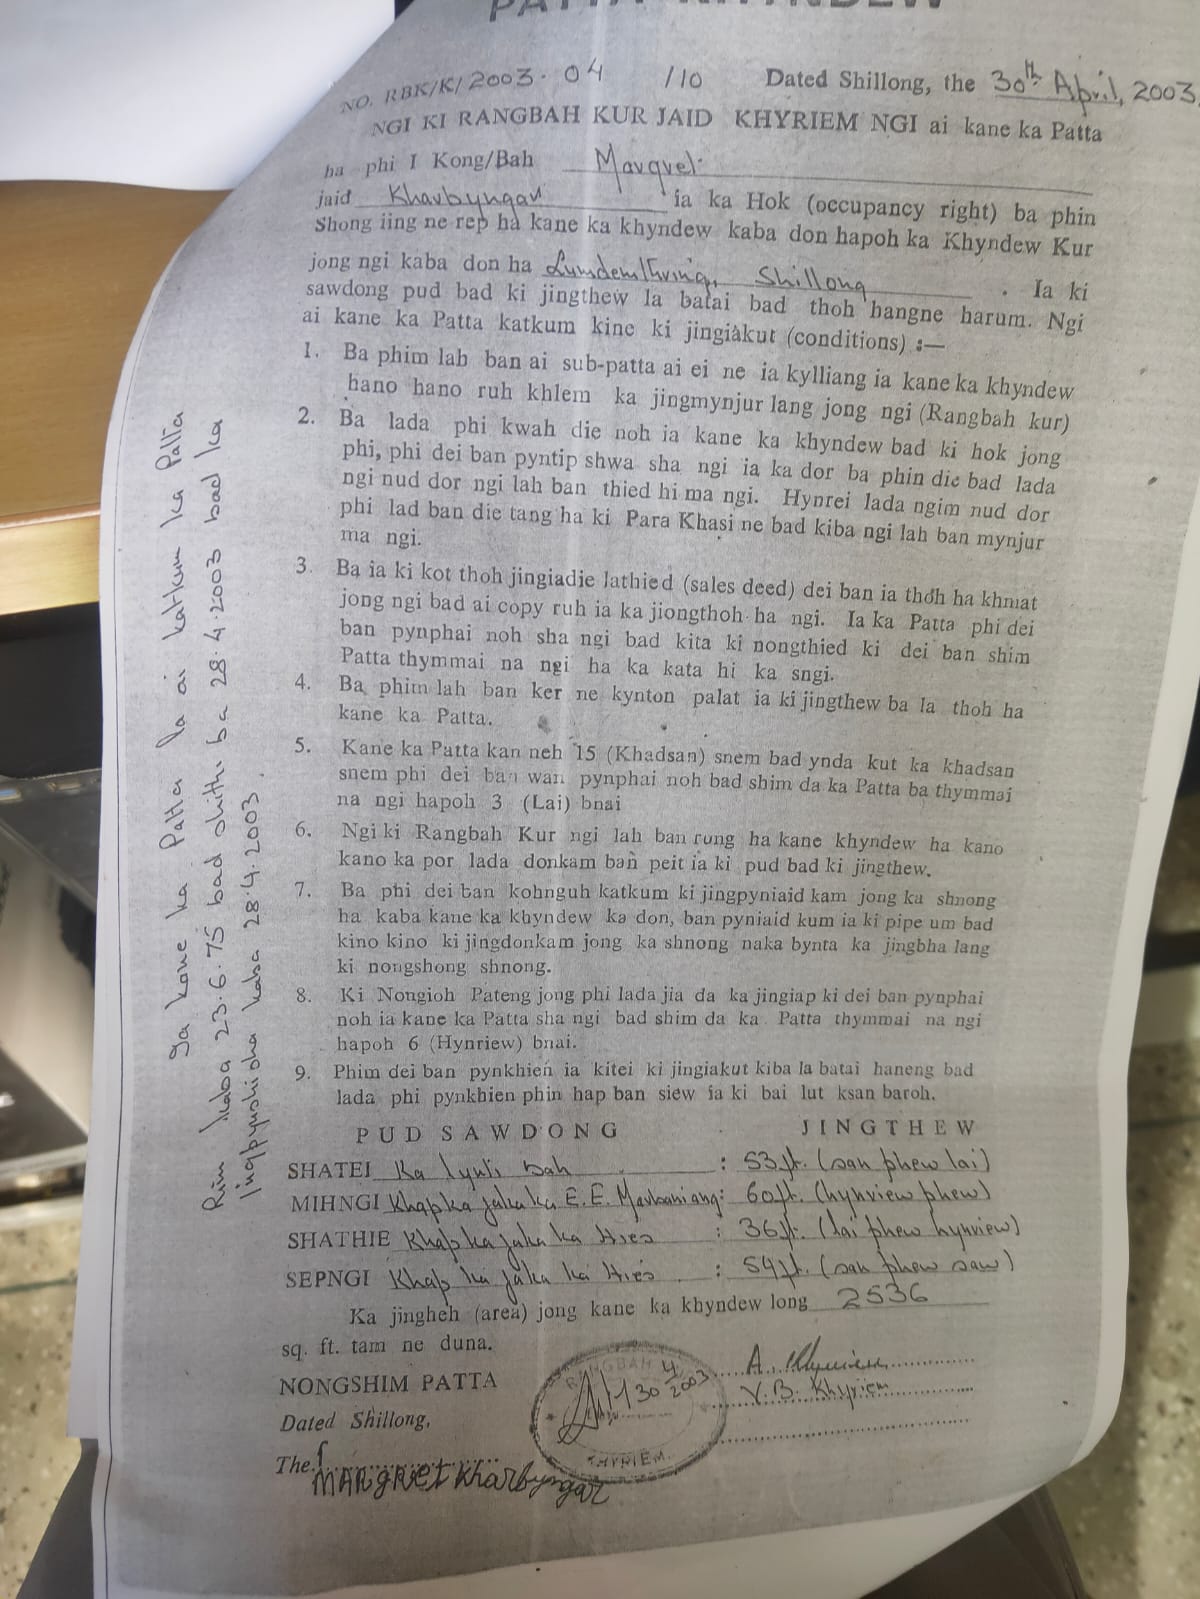 PATTA KHYNDEW
NO. RBK/K/2003.04 /10 Dated Shillong, the 30th April, 2003.
NGI KI RANGBAH KUR JAID KHYRIEM NGI ai kane ka Patta
ha phi I Kong/Bah Margret
jaid Kharbyngar ia ka Hok (occupancy right) ba phin
Shong iing ne rep ha kane ka khyndew kaba don hapoh ka Khyndew Kur
jong ngi kaba don ha Lumdemthring, Shillong . Ia ki
sawdong pud bad ki jingthew la batai bad thoh hangne harum. Ngi
ai kane ka Patta katkum kine ki jingiakut (conditions) :—
1. Ba phim lah ban ai sub-patta ai ei ne ia kylliang ia kane ka khyndew
hano hano ruh khlem ka jingmynjur lang jong ngi (Rangbah kur)
2. Ba lada phi kwah die noh ia kane ka khyndew bad ki hok jong
phi, phi dei ban pyntip shwa sha ngi ia ka dor ba phin die bad lada
ngi nud dor ngi lah ban thied hi ma ngi. Hynrei lada ngim nud dor
phi lad ban die tang ha ki Para Khasi ne bad kiba ngi lah ban mynjur
ma ngi.
3. Ba ia ki kot thoh jingiadie lathied (sales deed) dei ban ia thoh ha khmat
jong ngi bad ai copy ruh ia ka jiongthoh ha ngi. Ia ka Patta phi dei
ban pynphai noh sha ngi bad kita ki nongthied ki dei ban shim
Patta thymmai na ngi ha ka kata hi ka sngi.
4. Ba phim lah ban ker ne kynton palat ia ki jingthew ba la thoh ha
kane ka Patta.
5. Kane ka Patta kan neh 15 (Khadsan) snem bad ynda kut ka khadsan
snem phi dei ban wan pynphai noh bad shim da ka Patta ba thymmai
na ngi hapoh 3 (Lai) bnai
6. Ngi ki Rangbah Kur ngi lah ban rung ha kane khyndew ha kano
kano ka por lada donkam ban peit ia ki pud bad ki jingthew.
7. Ba phi dei ban kohnguh katkum ki jingpyniaid kam jong ka shnong
ha kaba kane ka khyndew ka don, ban pyniaid kum ia ki pipe um bad
kino kino ki jingdonkam jong ka shnong naka bynta ka jingbha lang
ki nongshong shnong.
8. Ki Nongioh Pateng jong phi lada jia da ka jingiap ki dei ban pynphai
noh ia kane ka Patta sha ngi bad shim da ka Patta thymmai na ngi
hapoh 6 (Hynriew) bnai.
9. Phim dei ban pynkhien ia kitei ki jingiakut kiba la batai haneng bad
lada phi pynkhien phin hap ban siew ia ki bai lut ksan baroh.
PUD SAWDONG JINGTHEW
SHATEI Ka lynti bah : 53 ft. (san phew lai)
MIHNGI Khap ka jaka ka E. E. Mawbaniang : 60 ft. (hynriew phew)
SHATHIE Khap ka jaka ka Hies : 36 ft. (lai phew hynriew)
SEPNGI Khap ka jaka ka Hies : 54 ft. (san phew saw)
Ka jingheh (area) jong kane ka khyndew long 2536
sq. ft. tam ne duna.
NONGSHIM PATTA
Dated Shillong,
The
MARgRet Kharbyngar
A. Khyriem
V. B. Khyriem
RANGBAH
30/4/2003
KHYRIEM
Ia kane ka Patta la ai katkum ka Patta
Rim kaba 23.6.75 bad shithi ba 28.4.2003 bad ka
jingpynshisha kaba 28.4.2003.